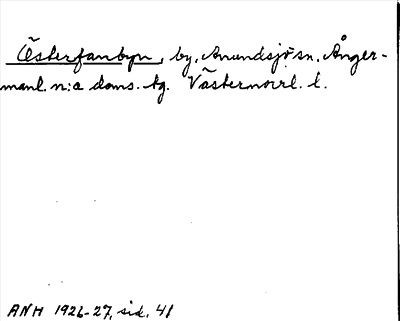 Österfanbyn, by, Anundsjö sn. Ånger-
manl. n:a doms. tg. Västernorrl. l.
ANH 1926-27, sid. 41